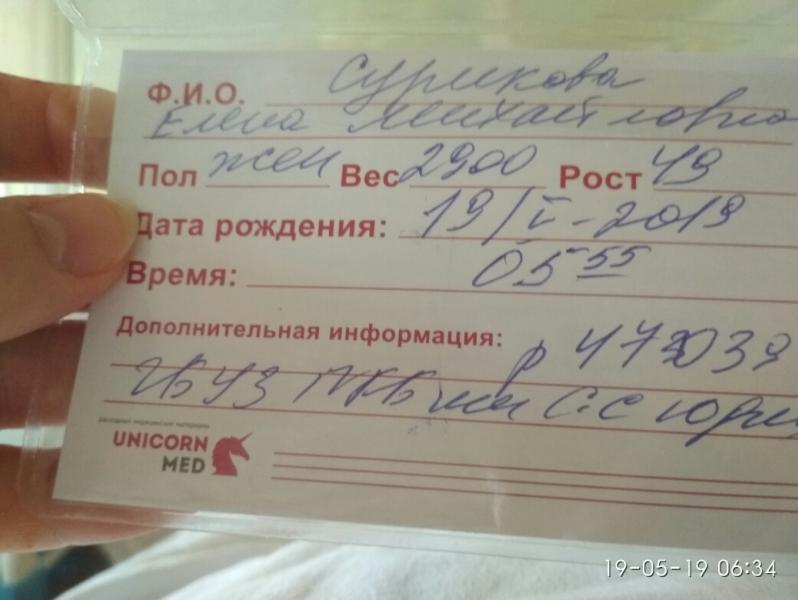 Ф.И.О. Сурикова
Елена Михайловна
Пол жен Вес 2900 Рост 49
Дата рождения: 19/V-2019
Время: 05 55
Дополнительная информация: р 473039
ГБУЗ ГКБ им С.С Юди
UNICORN
MED
19-05-19 06:34